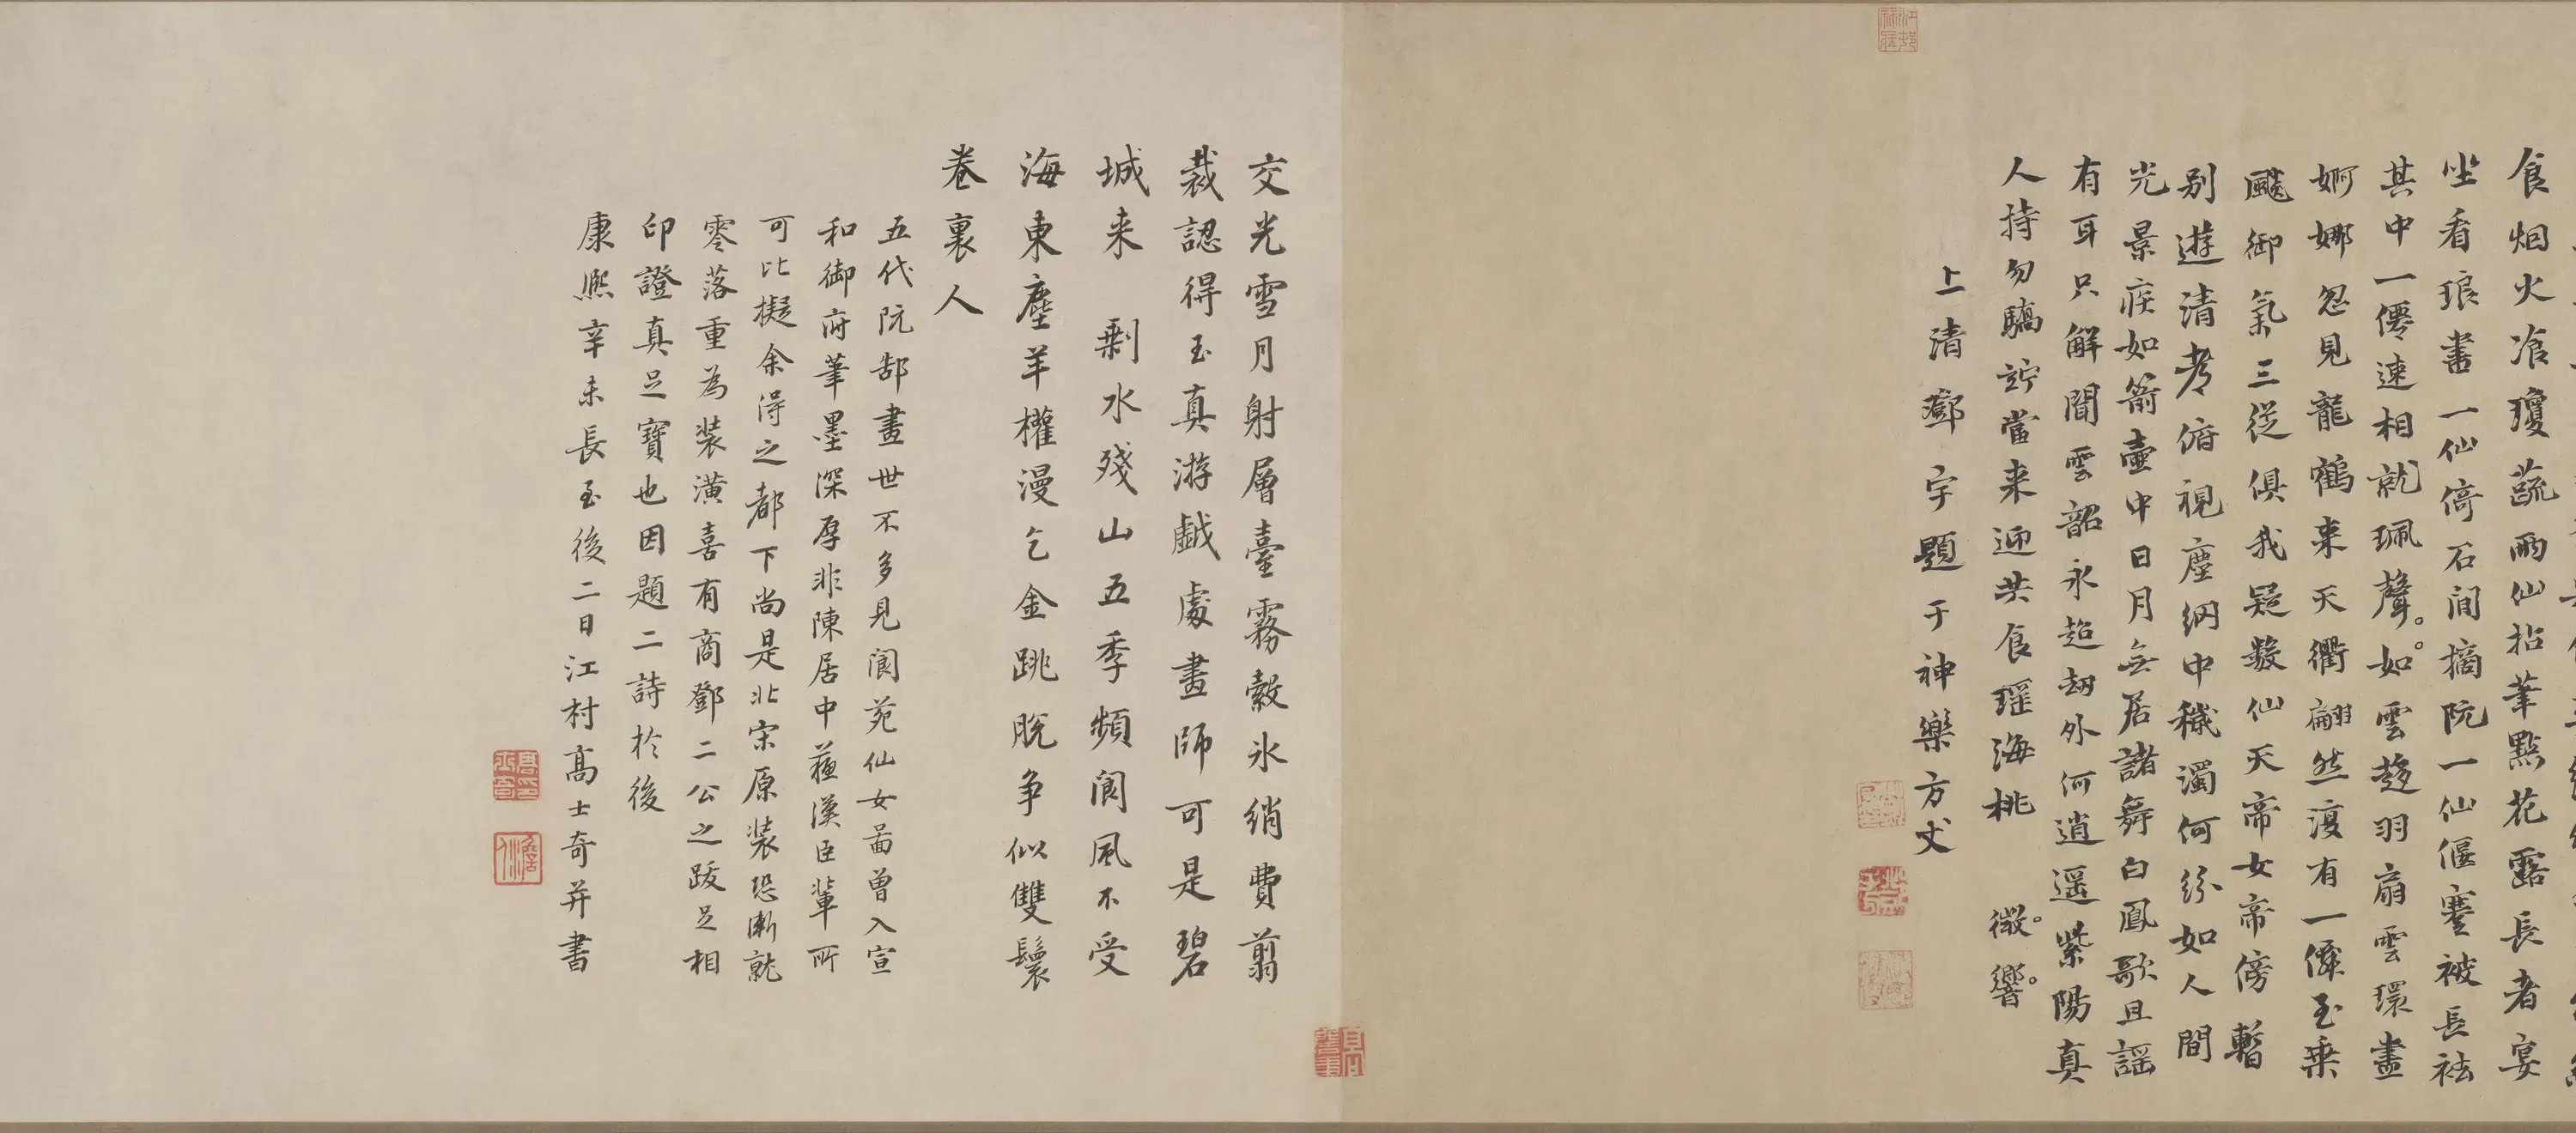 食烟火飡瓊蔬兩仙拈筆點花露長者宴
坐看琅書一仙倚石間摘阮一仙偃蹇被長袪
其中一僊速相就珮聲如雲軽羽扇雲環畫
婀娜忽見龍鶴来天衢翩然復有一僊至乗
飈御氣三從俱我疑數仙天帝女帝傍暫
别遊清考俯視塵網中穢濁何紛如人間
光景疾如箭壷中日月無居諸舞白鳳歌且謡
有耳只解聞雲韶永超劫外何逍遥紫陽真
人持勿驕詝當来迎共食瑶海桃 徵響
上清鄧宇題于神樂方丈
交光雪月射層臺霧縠氷綃費翦
裁認得玉真游戯處畫師可是碧
城来 剰水殘山五季頻閬風不受
海東塵羊權漫乞金跳脫争似雙鬟
卷裏人
五代阮郜畫世不多見閬苑仙女啚曽入宣
和御府筆墨深厚非陳居中蘓漢臣輩所
可比擬余得之都下尚是北宋原装恐漸就
零落重為装潢喜有商鄧二公之跋足相
印證真足寶也因題二詩於後
康熈辛未長至後二日江村高士奇并書